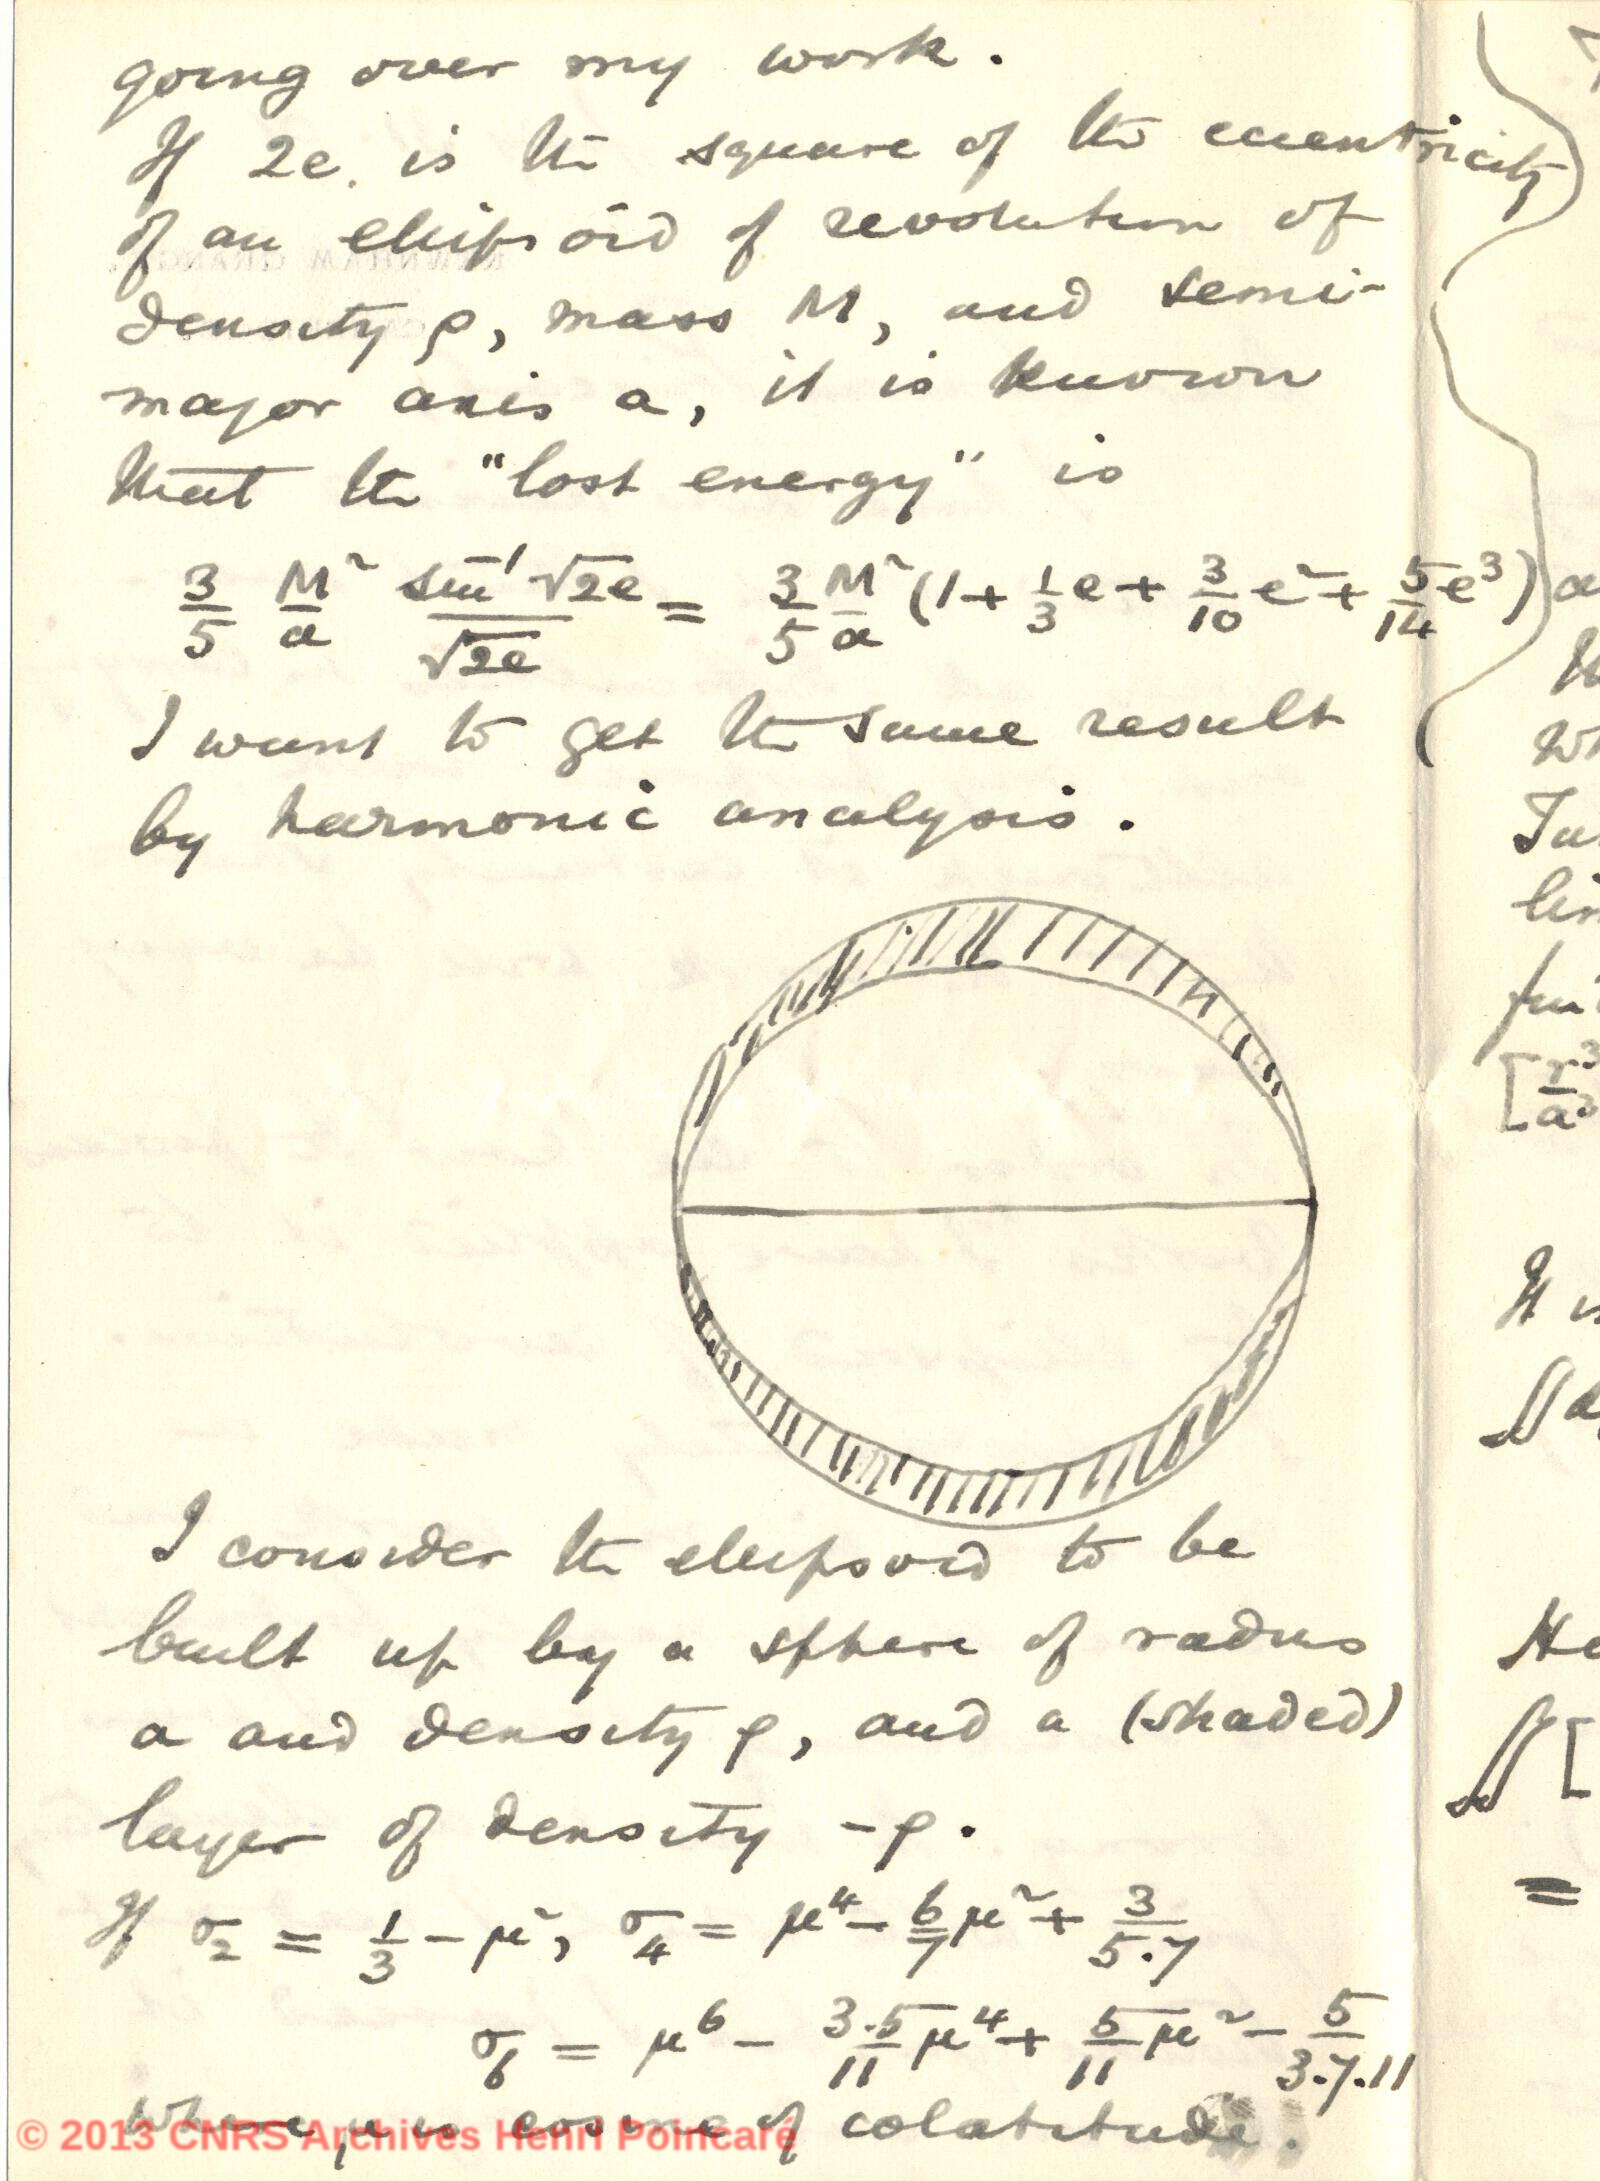 going over my work.
If 2e is the square of the eccentricity
of an ellipsoid of revolution of
density ρ, mass M, and semi-
major axis a, it is known
that the "lost energy" is
3/5 M²/a sin⁻¹√2e/√2e = 3/5 M²/a (1 + 1/3 e + 3/10 e² + 5/14 e³)
I want to get the same result
by harmonic analysis.
I consider the ellipsoid to be
built up by a sphere of radius
a and density ρ, and a (shaded)
layer of density -ρ.
If σ₂ = 1/3 - μ², σ₄ = μ⁴ - 6/7 μ² + 3/5.7
σ₆ = μ⁶ - 3.5/11 μ⁴ + 5/11 μ² - 5/3.7.11
where μ is cosine of colatitude.
© 2013 CNRS Archives Henri Poincaré